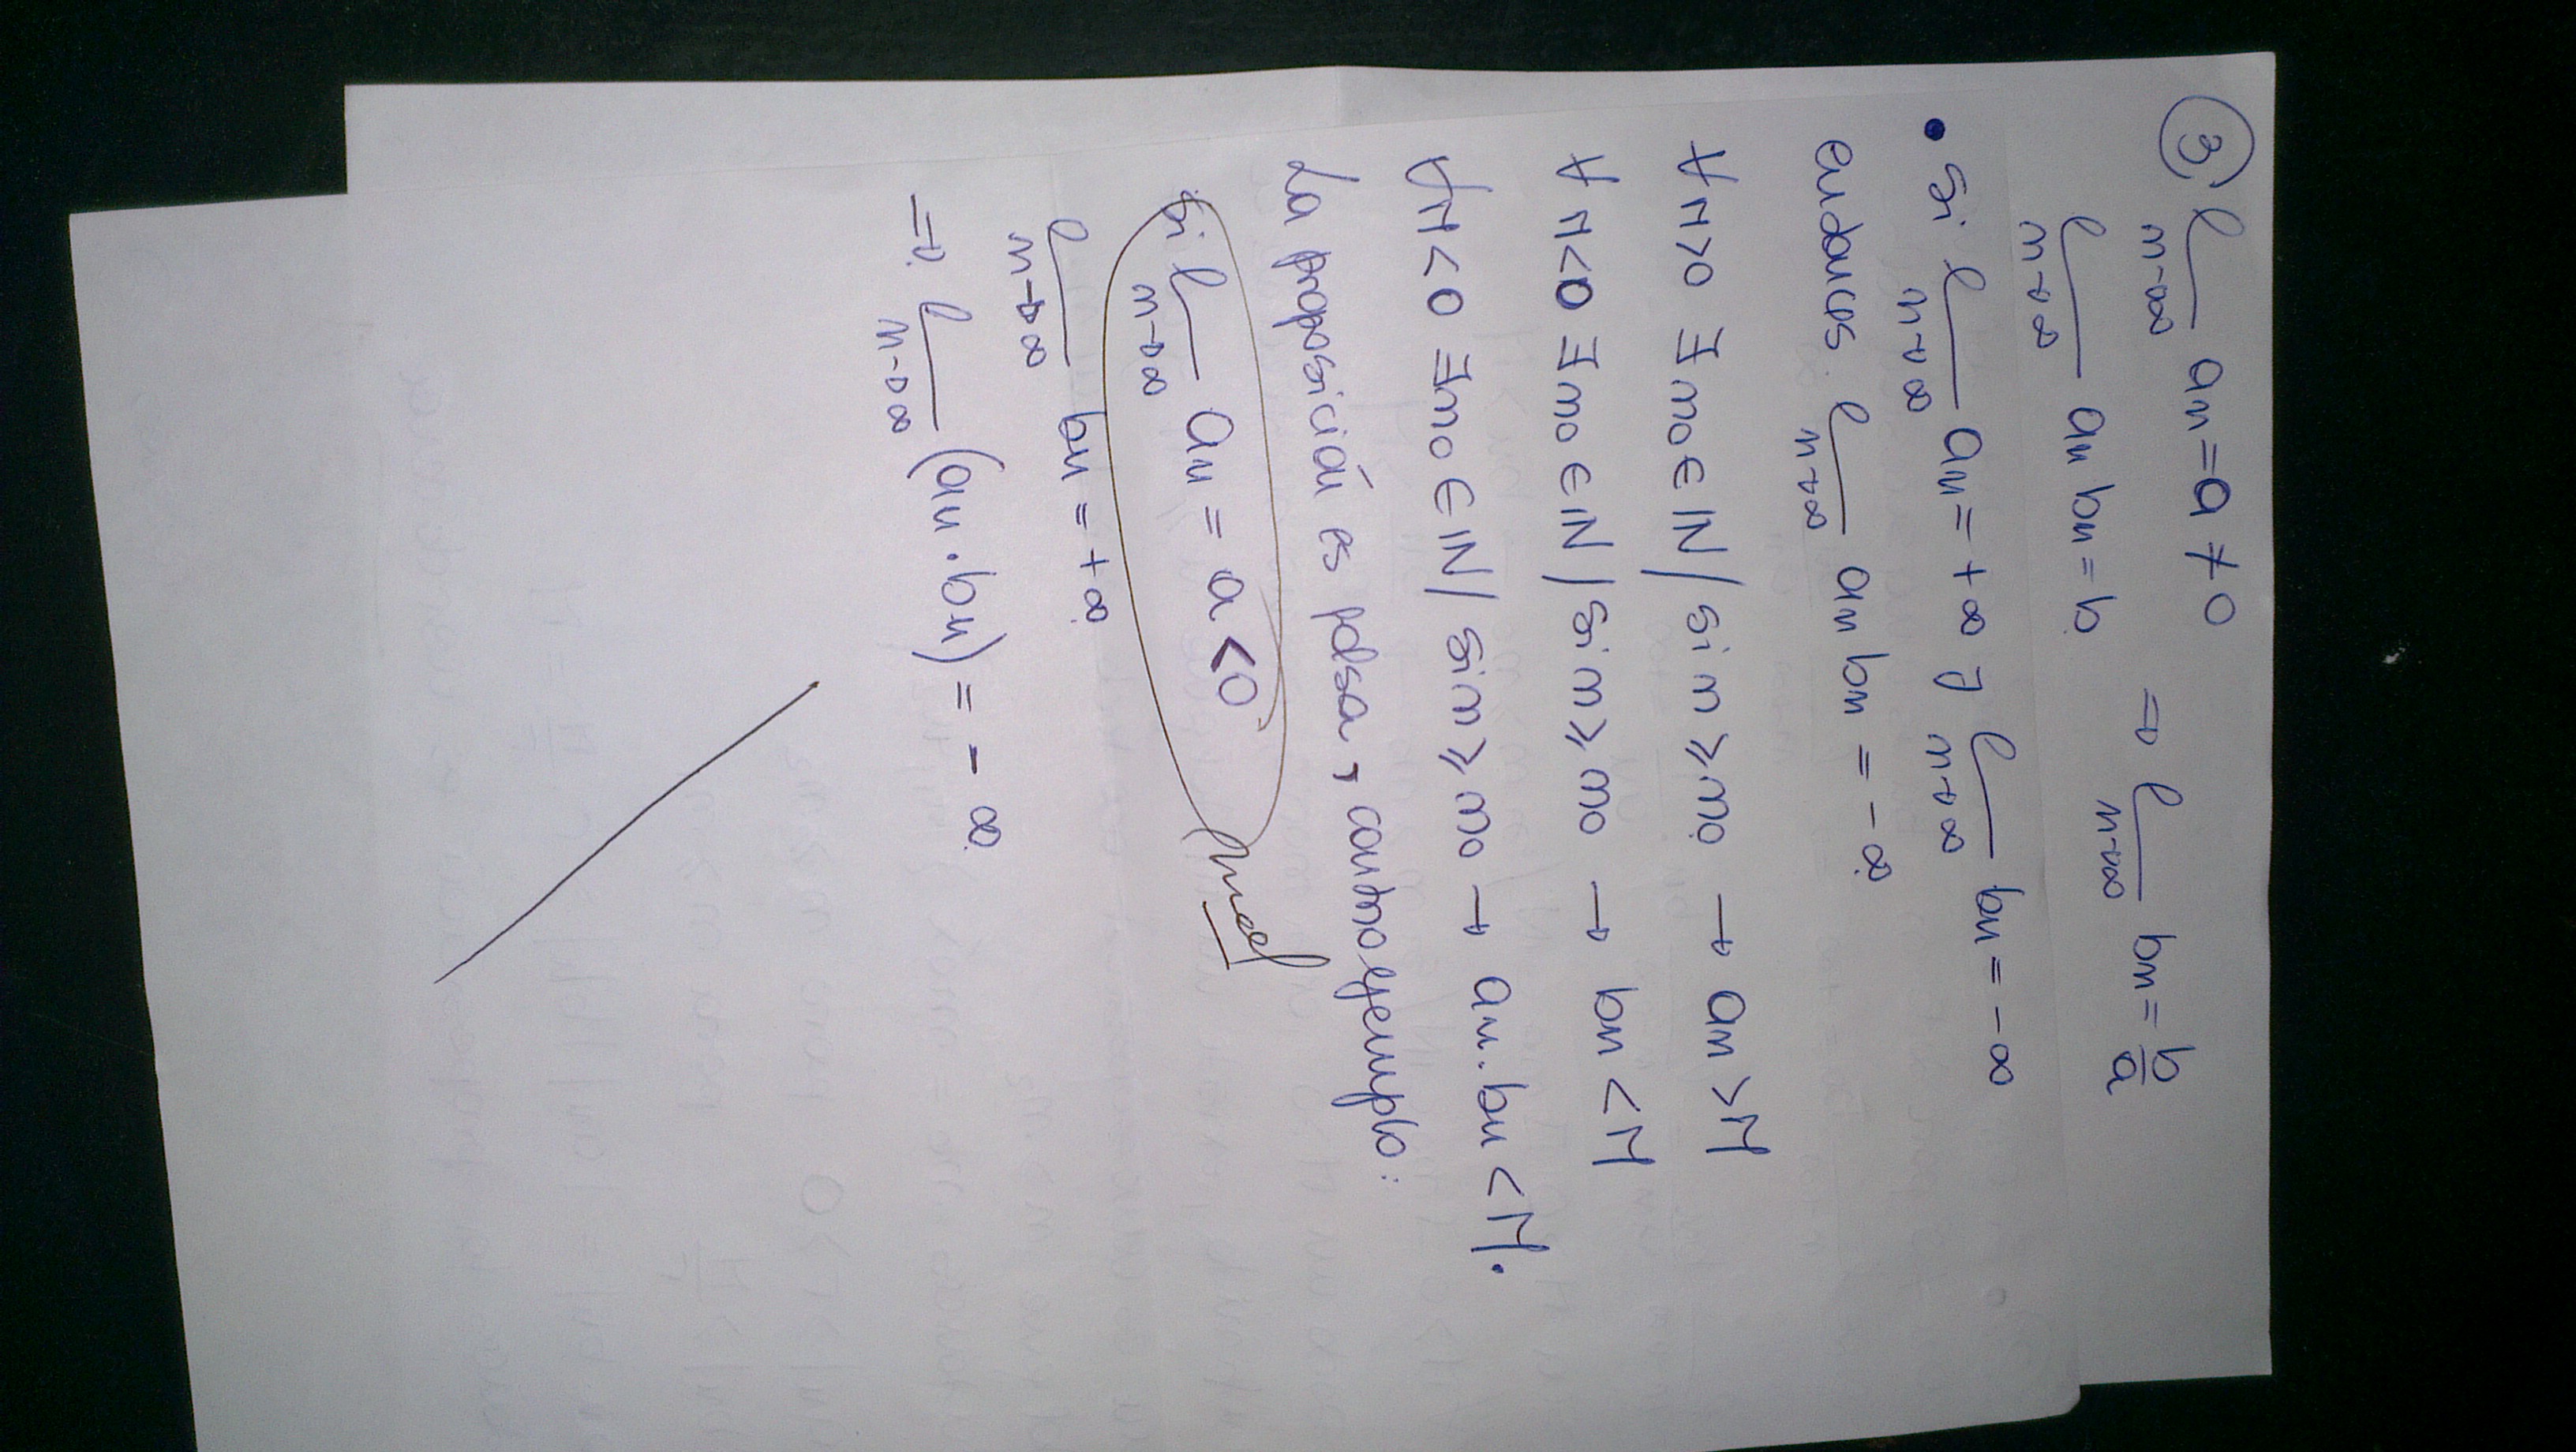 ③ l_{n→∞} an = a ≠ 0
l_{n→∞} an bn = b ⇒ l_{n→∞} bn = b/a
• Si l_{n→∞} an = +∞ y l_{n→∞} bn = -∞
entonces l_{n→∞} an bn = -∞
∀ M>0 ∃ n0 ∈ IN / si n ≥ n0 → an > M
∀ M<0 ∃ n0 ∈ IN / si n ≥ n0 → bn < M
∀ M<0 ∃ n0 ∈ IN / si n ≥ n0 → an.bn < M.
La proposición es falsa, contraejemplo:
Si l_{n→∞} an = a < 0
l_{n→∞} bn = +∞
⇒ l_{n→∞} (an.bn) = -∞